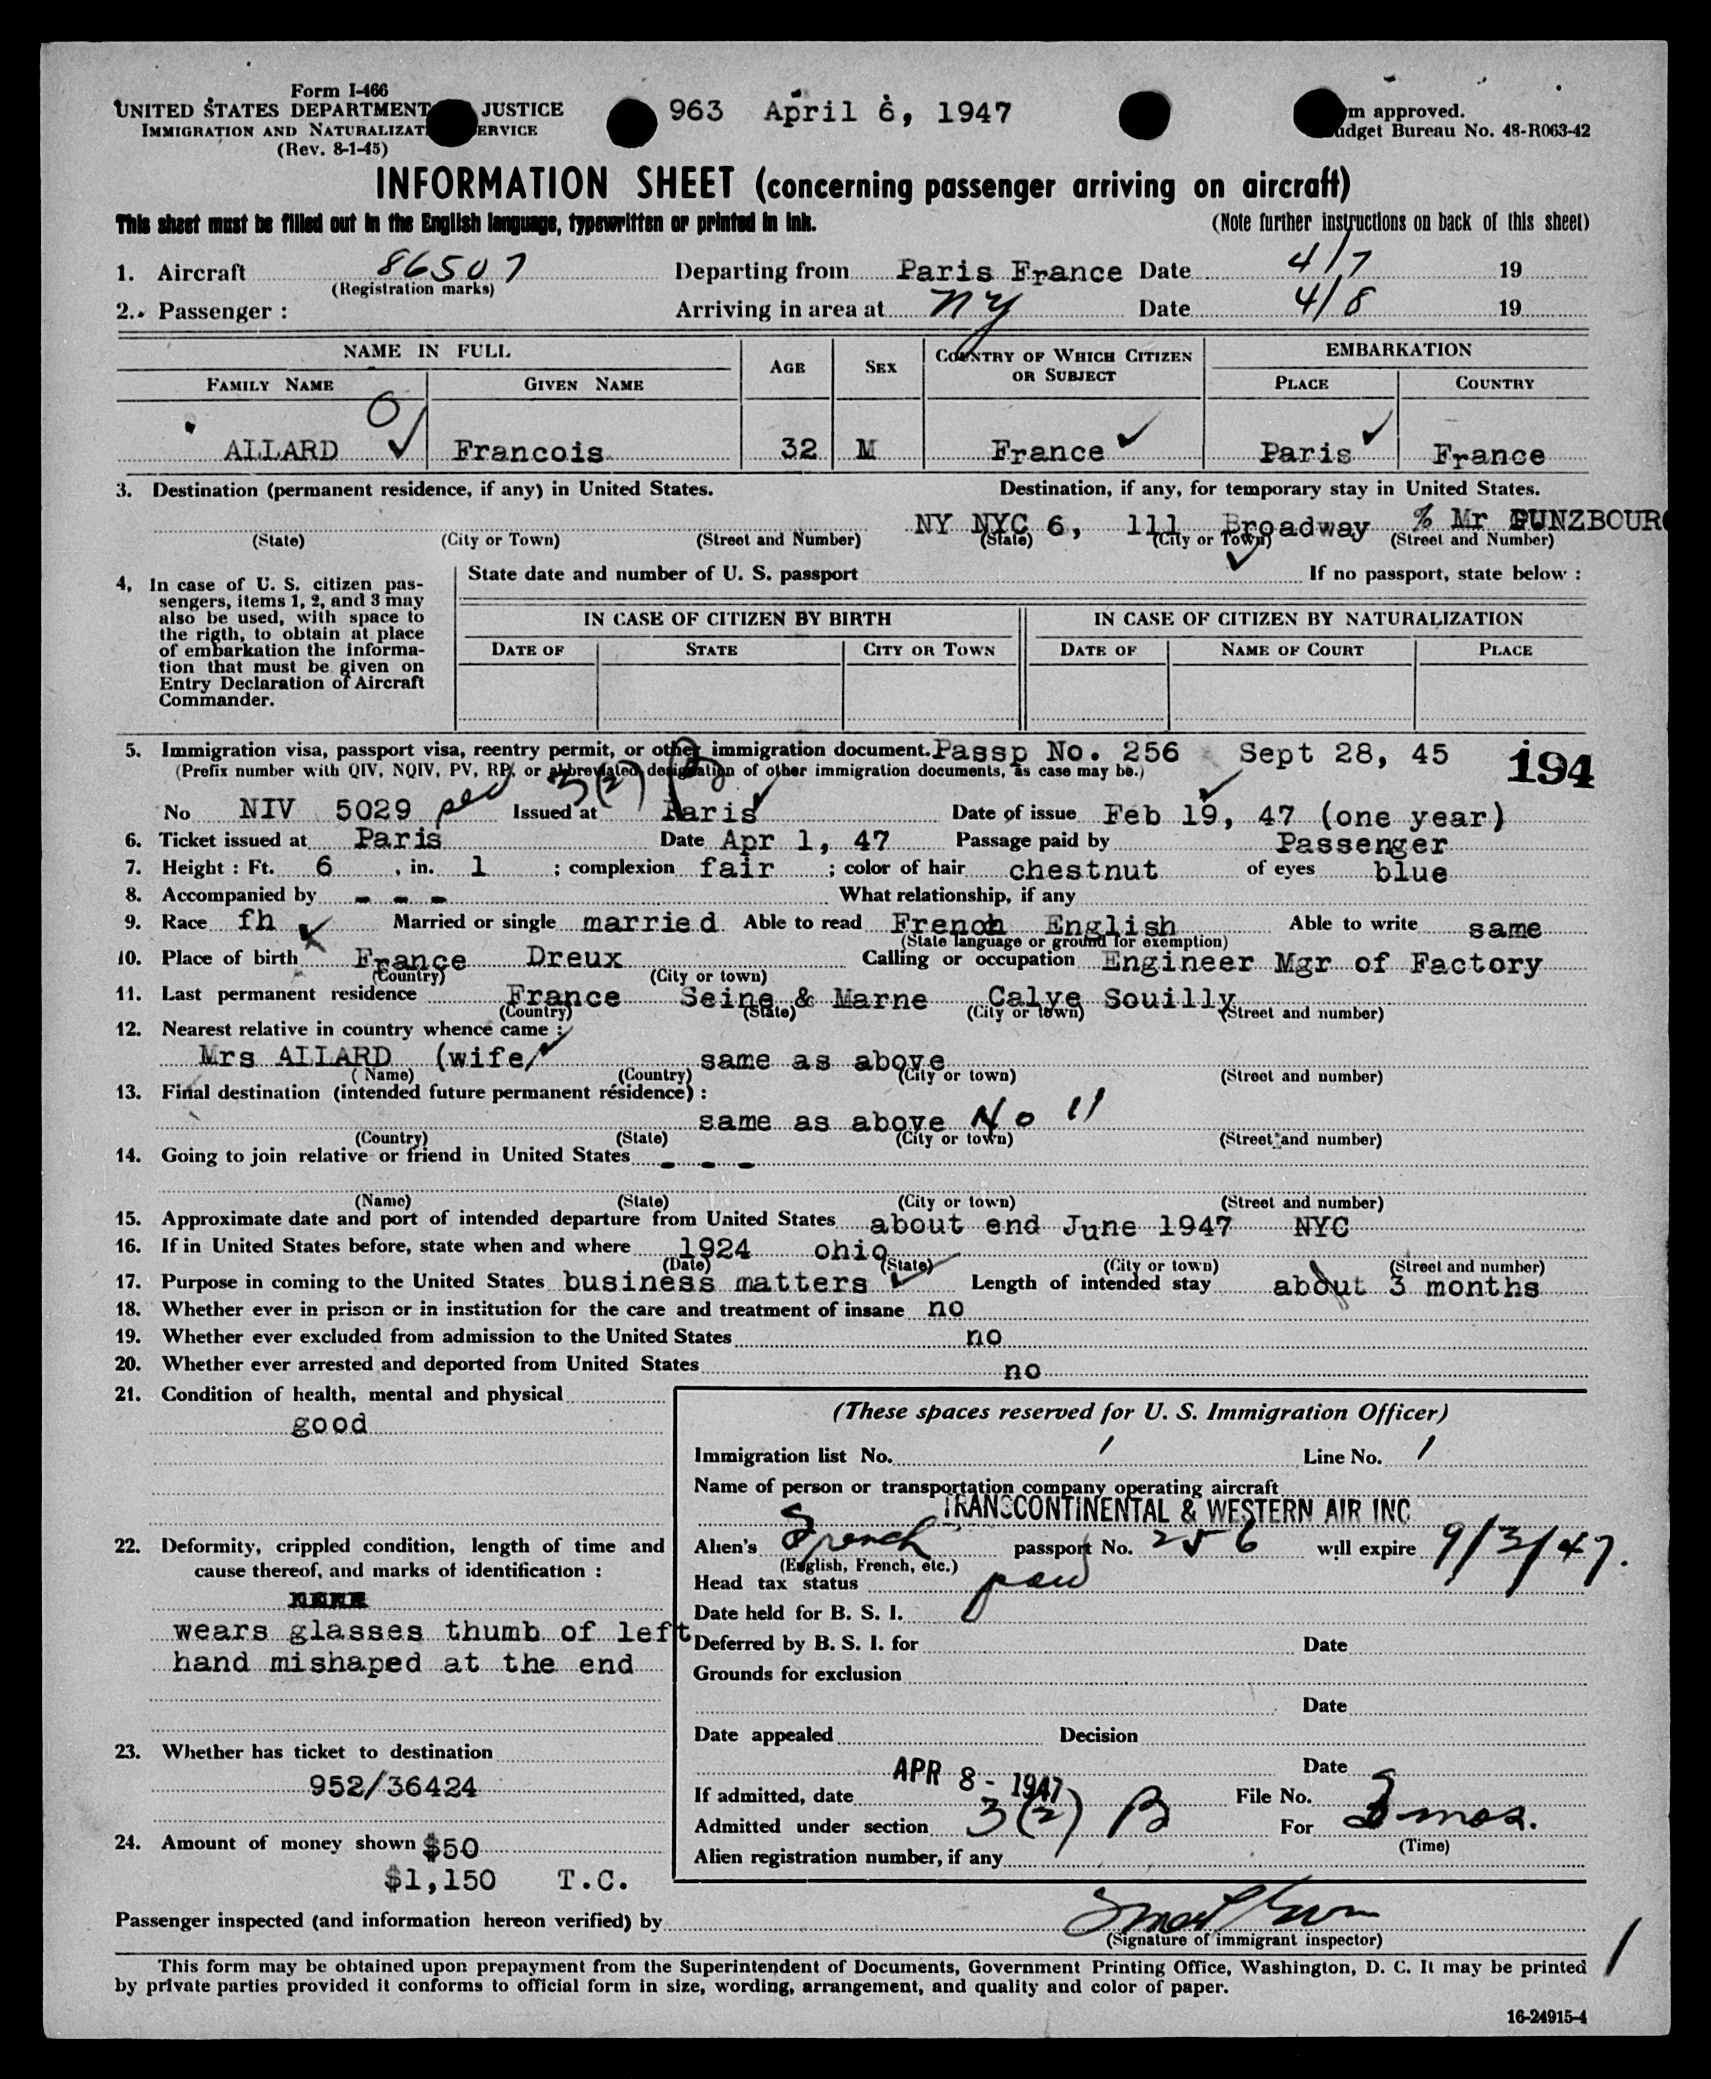 Form I-466
UNITED STATES DEPARTMENT JUSTICE
IMMIGRATION AND NATURALIZAT ERVICE
(Rev. 8-1-45)
963 April 6, 1947
m approved.
udget Bureau No. 48-R063-42
INFORMATION SHEET (concerning passenger arriving on aircraft)
This sheet must be filled out in the English language, typewritten or printed in ink.
(Note further instructions on back of this sheet)
1. Aircraft 86507 Departing from Paris France Date 4/7 19
(Registration marks)
2. Passenger : Arriving in area at NY Date 4/8 19
NAME IN FULL AGE SEX COUNTRY OF WHICH CITIZEN OR SUBJECT EMBARKATION
FAMILY NAME GIVEN NAME PLACE COUNTRY
ALLARD Francois 32 M France Paris France
3. Destination (permanent residence, if any) in United States. Destination, if any, for temporary stay in United States.
NY NYC 6, 111 Broadway % Mr GUNZBOURG
(State) (City or Town) (Street and Number) (State) (City or Town) (Street and Number)
4, In case of U. S. citizen pas-
sengers, items 1, 2, and 3 may
also be used, with space to
the rigth, to obtain at place
of embarkation the informa-
tion that must be given on
Entry Declaration of Aircraft
Commander.
State date and number of U. S. passport If no passport, state below :
IN CASE OF CITIZEN BY BIRTH IN CASE OF CITIZEN BY NATURALIZATION
DATE OF STATE CITY OR TOWN DATE OF NAME OF COURT PLACE
5. Immigration visa, passport visa, reentry permit, or other immigration document. Passp No. 256 Sept 28, 45
(Prefix number with QIV, NQIV, PV, RP, or abbreviated designation of other immigration documents, as case may be.)
194
3(2) B
No NIV 5029 Issued at Paris Date of issue Feb 19, 47 (one year)
6. Ticket issued at Paris Date Apr 1, 47 Passage paid by Passenger
7. Height : Ft. 6 , in. 1 ; complexion fair ; color of hair chestnut of eyes blue
8. Accompanied by - - - What relationship, if any
9. Race fh Married or single married Able to read French English Able to write same
(State language or ground for exemption)
10. Place of birth France Dreux Calling or occupation Engineer Mgr of Factory
(Country) (City or town)
11. Last permanent residence France Seine & Marne Calye Souilly
(Country) (State) (City or town) (Street and number)
12. Nearest relative in country whence came :
Mrs ALLARD (wife/ same as above
(Name) (Country) (City or town) (Street and number)
13. Final destination (intended future permanent résidence) :
same as above No 11
(Country) (State) (City or town) (Street and number)
14. Going to join relative or friend in United States - - -
(Name) (State) (City or town) (Street and number)
15. Approximate date and port of intended departure from United States about end June 1947 NYC
16. If in United States before, state when and where 1924 ohio
(Date) (State) (City or town) (Street and number)
17. Purpose in coming to the United States business matters Length of intended stay about 3 months
18. Whether ever in prison or in institution for the care and treatment of insane no
19. Whether ever excluded from admission to the United States no
20. Whether ever arrested and deported from United States no
21. Condition of health, mental and physical
good
22. Deformity, crippled condition, length of time and
cause thereof, and marks of identification :
wears glasses thumb of left
hand mishaped at the end
23. Whether has ticket to destination
952/36424
24. Amount of money shown $50
$1,150 T.C.
(These spaces reserved for U. S. Immigration Officer)
Immigration list No. 1 Line No. 1
Name of person or transportation company operating aircraft
TRANSCONTINENTAL & WESTERN AIR INC
Alien's French passport No. 256 will expire 9/3/47.
(English, French, etc.)
Head tax status
Date held for B. S. I.
Deferred by B. S. I. for Date
Grounds for exclusion
Date
Date appealed Decision
Date
If admitted, date APR 8 - 1947 File No.
Admitted under section 3(2) B For 3 mos.
(Time)
Alien registration number, if any
Passenger inspected (and information hereon verified) by
(Signature of immigrant inspector)
This form may be obtained upon prepayment from the Superintendent of Documents, Government Printing Office, Washington, D. C. It may be printed
by private parties provided it conforms to official form in size, wording, arrangement, and quality and color of paper.
16-24915-4